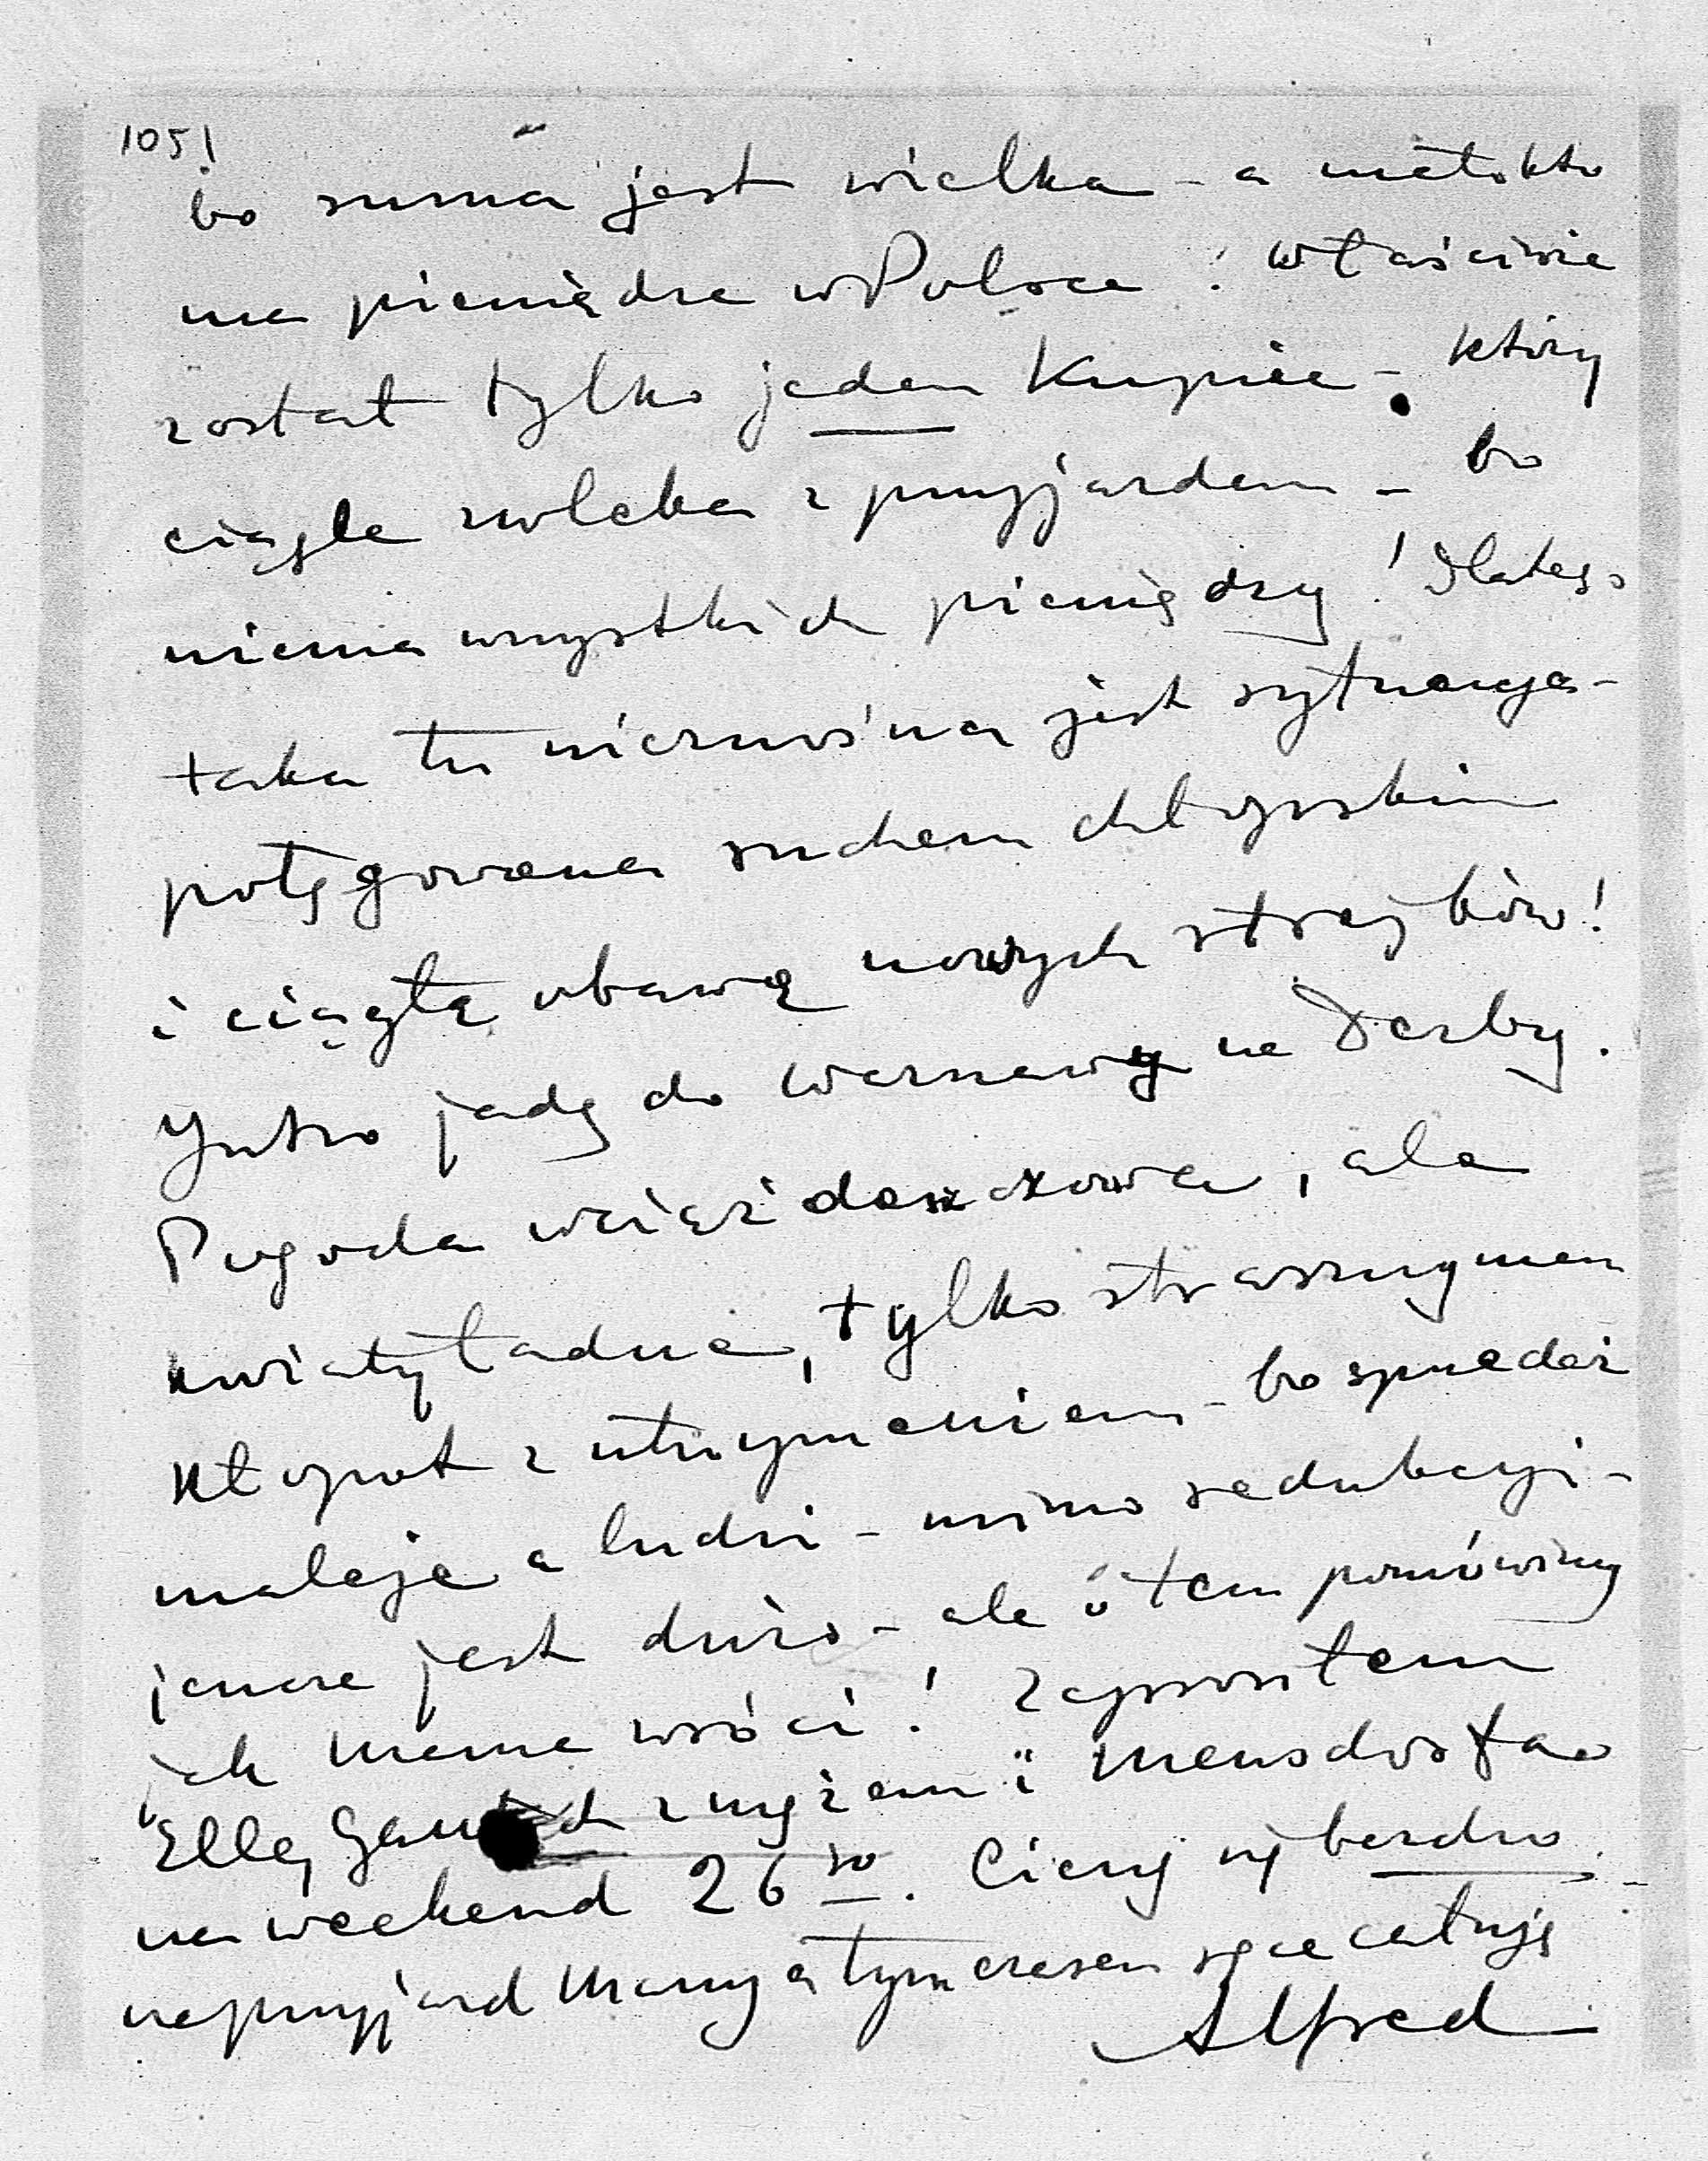 105!
bo suma jest wielka – a mało kto
ma pieniądze w Polsce! Właściwie
został tylko jeden Kupiec – który
ciągle zwleka z przyjazdem – bo
niema wszystkich pieniędzy! Dlatego
taka tu nieznośna jest sytuacya –
potęgowana ruchem chłopskim
i ciągłą obawą nowych strajków!
Jutro jadę do Warszawy na Derby.
Pogoda wciąż deszczowa, ale
kwiaty ładne, tylko strasznym mam
kłopot z utrzymaniem – bo sprzedaż
maleje a ludzi – mimo redukcyi –
jeszcze jest dużo – ale o tem pomówimy
jak Mama wróci! Zaprosiłem
Ellę z mężem i Mensdorffa
na weekend 26 go. Cieszę się bardzo
na przyjazd Mamy a tymczasem rące całuję
Alfred